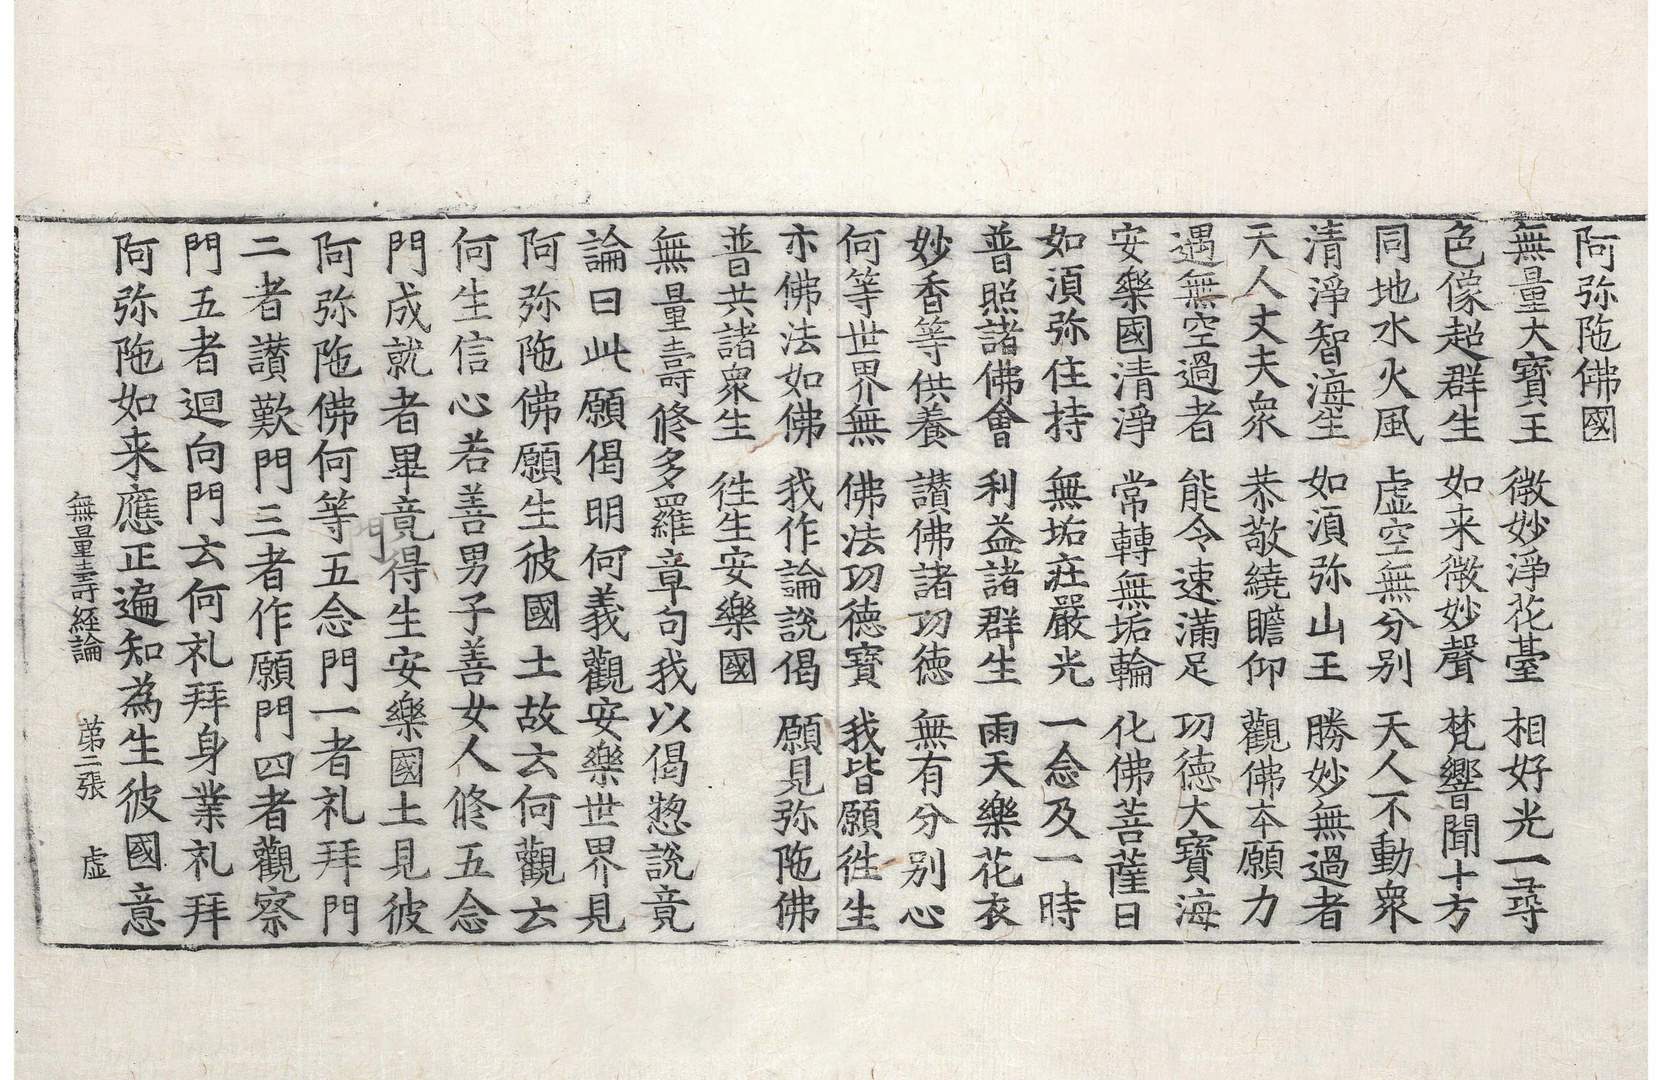 阿弥陁佛國
無量大寶王 微妙淨花臺 相好光一尋
色像超群生 如来微妙聲 梵響聞十方
同地水火風 虛空無分别 天人不動衆
清淨智海生 如湏弥山王 勝妙無過者
天人丈夫衆 恭敬繞瞻仰 觀佛本願力
遇無空過者 能令速滿足 功德大寶海
安樂國清淨 常轉無垢輪 化佛菩薩日
如湏弥住持 無垢莊嚴光 一念及一時
普照諸佛會 利益諸群生 雨天樂花衣
妙香等供養 讃佛諸功德 無有分别心
何等世界無 佛法功德寶 我皆願徃生
亦佛法如佛 我作論說偈 願見弥陁佛
普共諸衆生 徃生安樂國
無量壽修多羅章句我以偈惣說竟
論曰此願偈明何義觀安樂世界見
阿弥陁佛願生彼國土故云何觀云
何生信心若善男子善女人修五念
門成就者畢竟得生安樂國土見彼
阿弥陁佛何等五念門一者礼拜門
門
二者讃歎門三者作願門四者觀察
門五者迴向門云何礼拜身業礼拜
阿弥陁如来應正遍知為生彼國意
無量壽經論 苐二張 虛